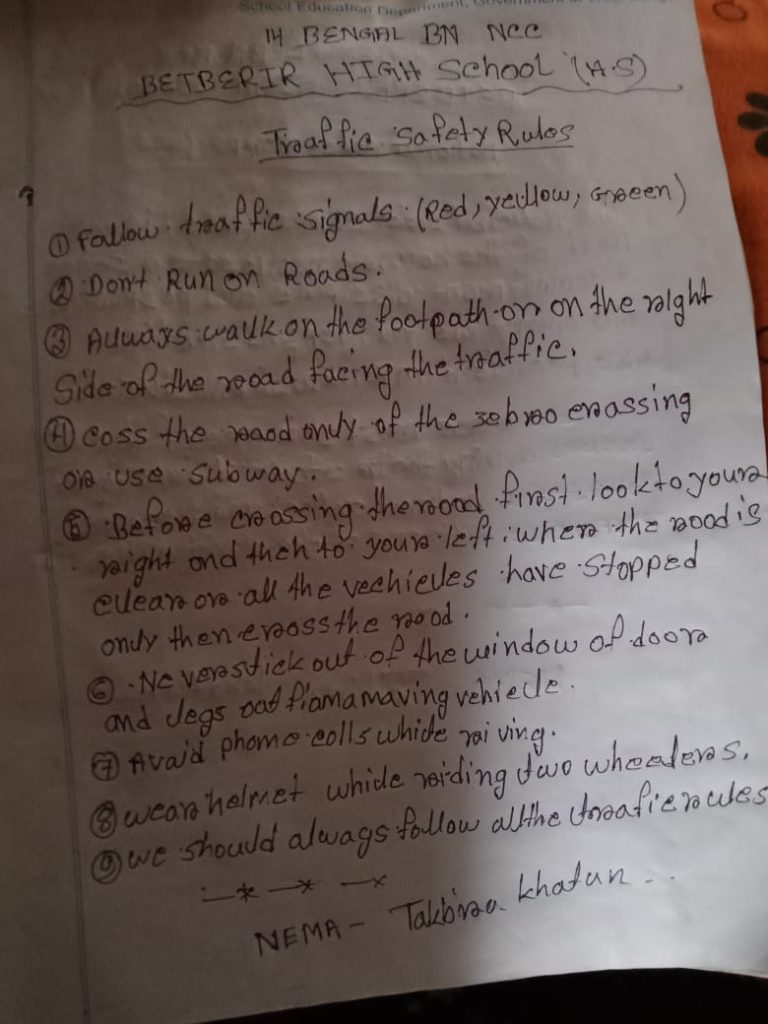 School Education Department, Government of
14 BENGAL BN NCC
BETBERIR HIGH School (H.S)
Traaffic Safety Rules
① Fallow traaffic signals (Red, yellow, Græen)
② Don't Run on Roads.
③ Always walk on the footpath or on the raight
Side of the roead facing the traaffic.
④ Coss the raod only of the zebrao craassing
ore use Subway.
⑤ Before croossing the rood first look to youra
raight and then to youra left. when the rood is
clear or all the vechicles have Stopped
only then cross the rood.
⑥ Neverstick out of the window of doora
and legs out fiamamaving vehicle.
⑦ Avaid phome colls while raiving.
⑧ wear helmet while raiding two wheelers.
⑨ we should always follow all the traafic rules
NEMA - Takbira Khatun